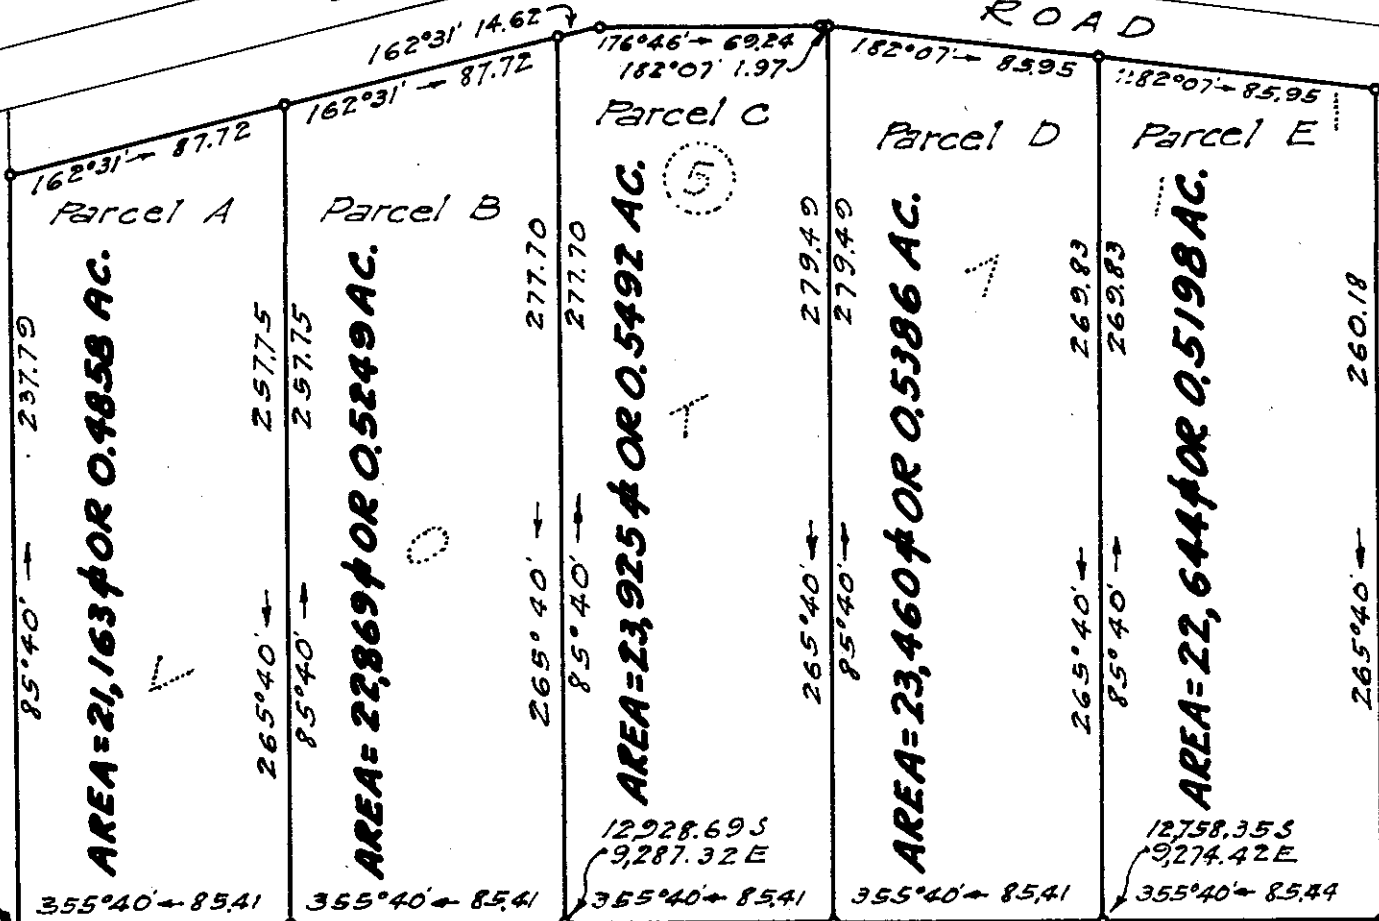 ROAD
162°31' 14.62
176°46' → 69.24
182°07' 1.97
182°07' → 85.95
182°07' → 85.95
162°31' → 87.72
162°31' → 87.72
Parcel A
Parcel B
Parcel C
Parcel D
Parcel E
5
237.79
85°40' →
AREA=21,163 ⌀ OR 0.4858 AC.
257.75
265°40' ←
257.75
85°40' →
AREA=22,869 ⌀ OR 0.5249 AC.
277.70
265°40' ←
277.70
85°40' →
AREA=23,925 ⌀ OR 0.5492 AC.
279.49
265°40' ←
279.49
85°40' →
AREA=23,460 ⌀ OR 0.5386 AC.
269.83
265°40' ←
269.83
85°40' →
AREA=22,644 ⌀ OR 0.5198 AC.
260.18
265°40' ←
L
O
T
1
12,928.69 S
9,287.32 E
12,758.35 S
9,274.42 E
355°40' ← 85.41
355°40' ← 85.41
355°40' ← 85.41
355°40' ← 85.41
355°40' ← 85.44